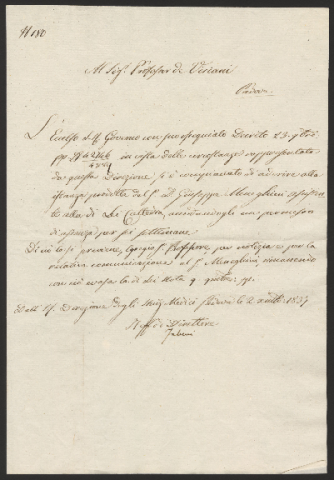 N 180
Al Sig.r Professor De Visiani
Padova
L'Eccelso I. R. Governo con suo ossequiato Decreto 23
in vista delle circostanze rappresentate
da questa Direzione si è compiaciuto di aderire alla
istanza prodotta dal S.r D.r Giuseppe Meneghini assisten-
te alla di Lei Cattedra, accordandogli un permesso
di assenza per sei settimane
Di ciò la si previene, Egregio S. Professore per notizia e per la
relativa comunicazione al S. Meneghini, rimanendo
con ciò evasa la di Lei Nota 9
Dall' I. R. Direzione degli Studj Medici Padova le 2 1837
Il ff. di Direttore